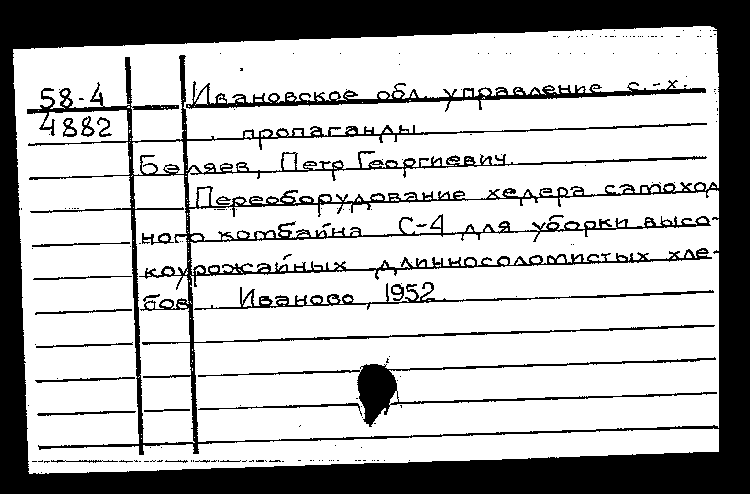 58-4 Ивановское обл. управление с.-х.
4882 пропаганды
Беляев, Петр Георгиевич.
Переоборудование хедера самоход
ного комбайна С-4 для уборки высо-
коурожайных длинносоломистых хле-
бов. Иваново, 1952.